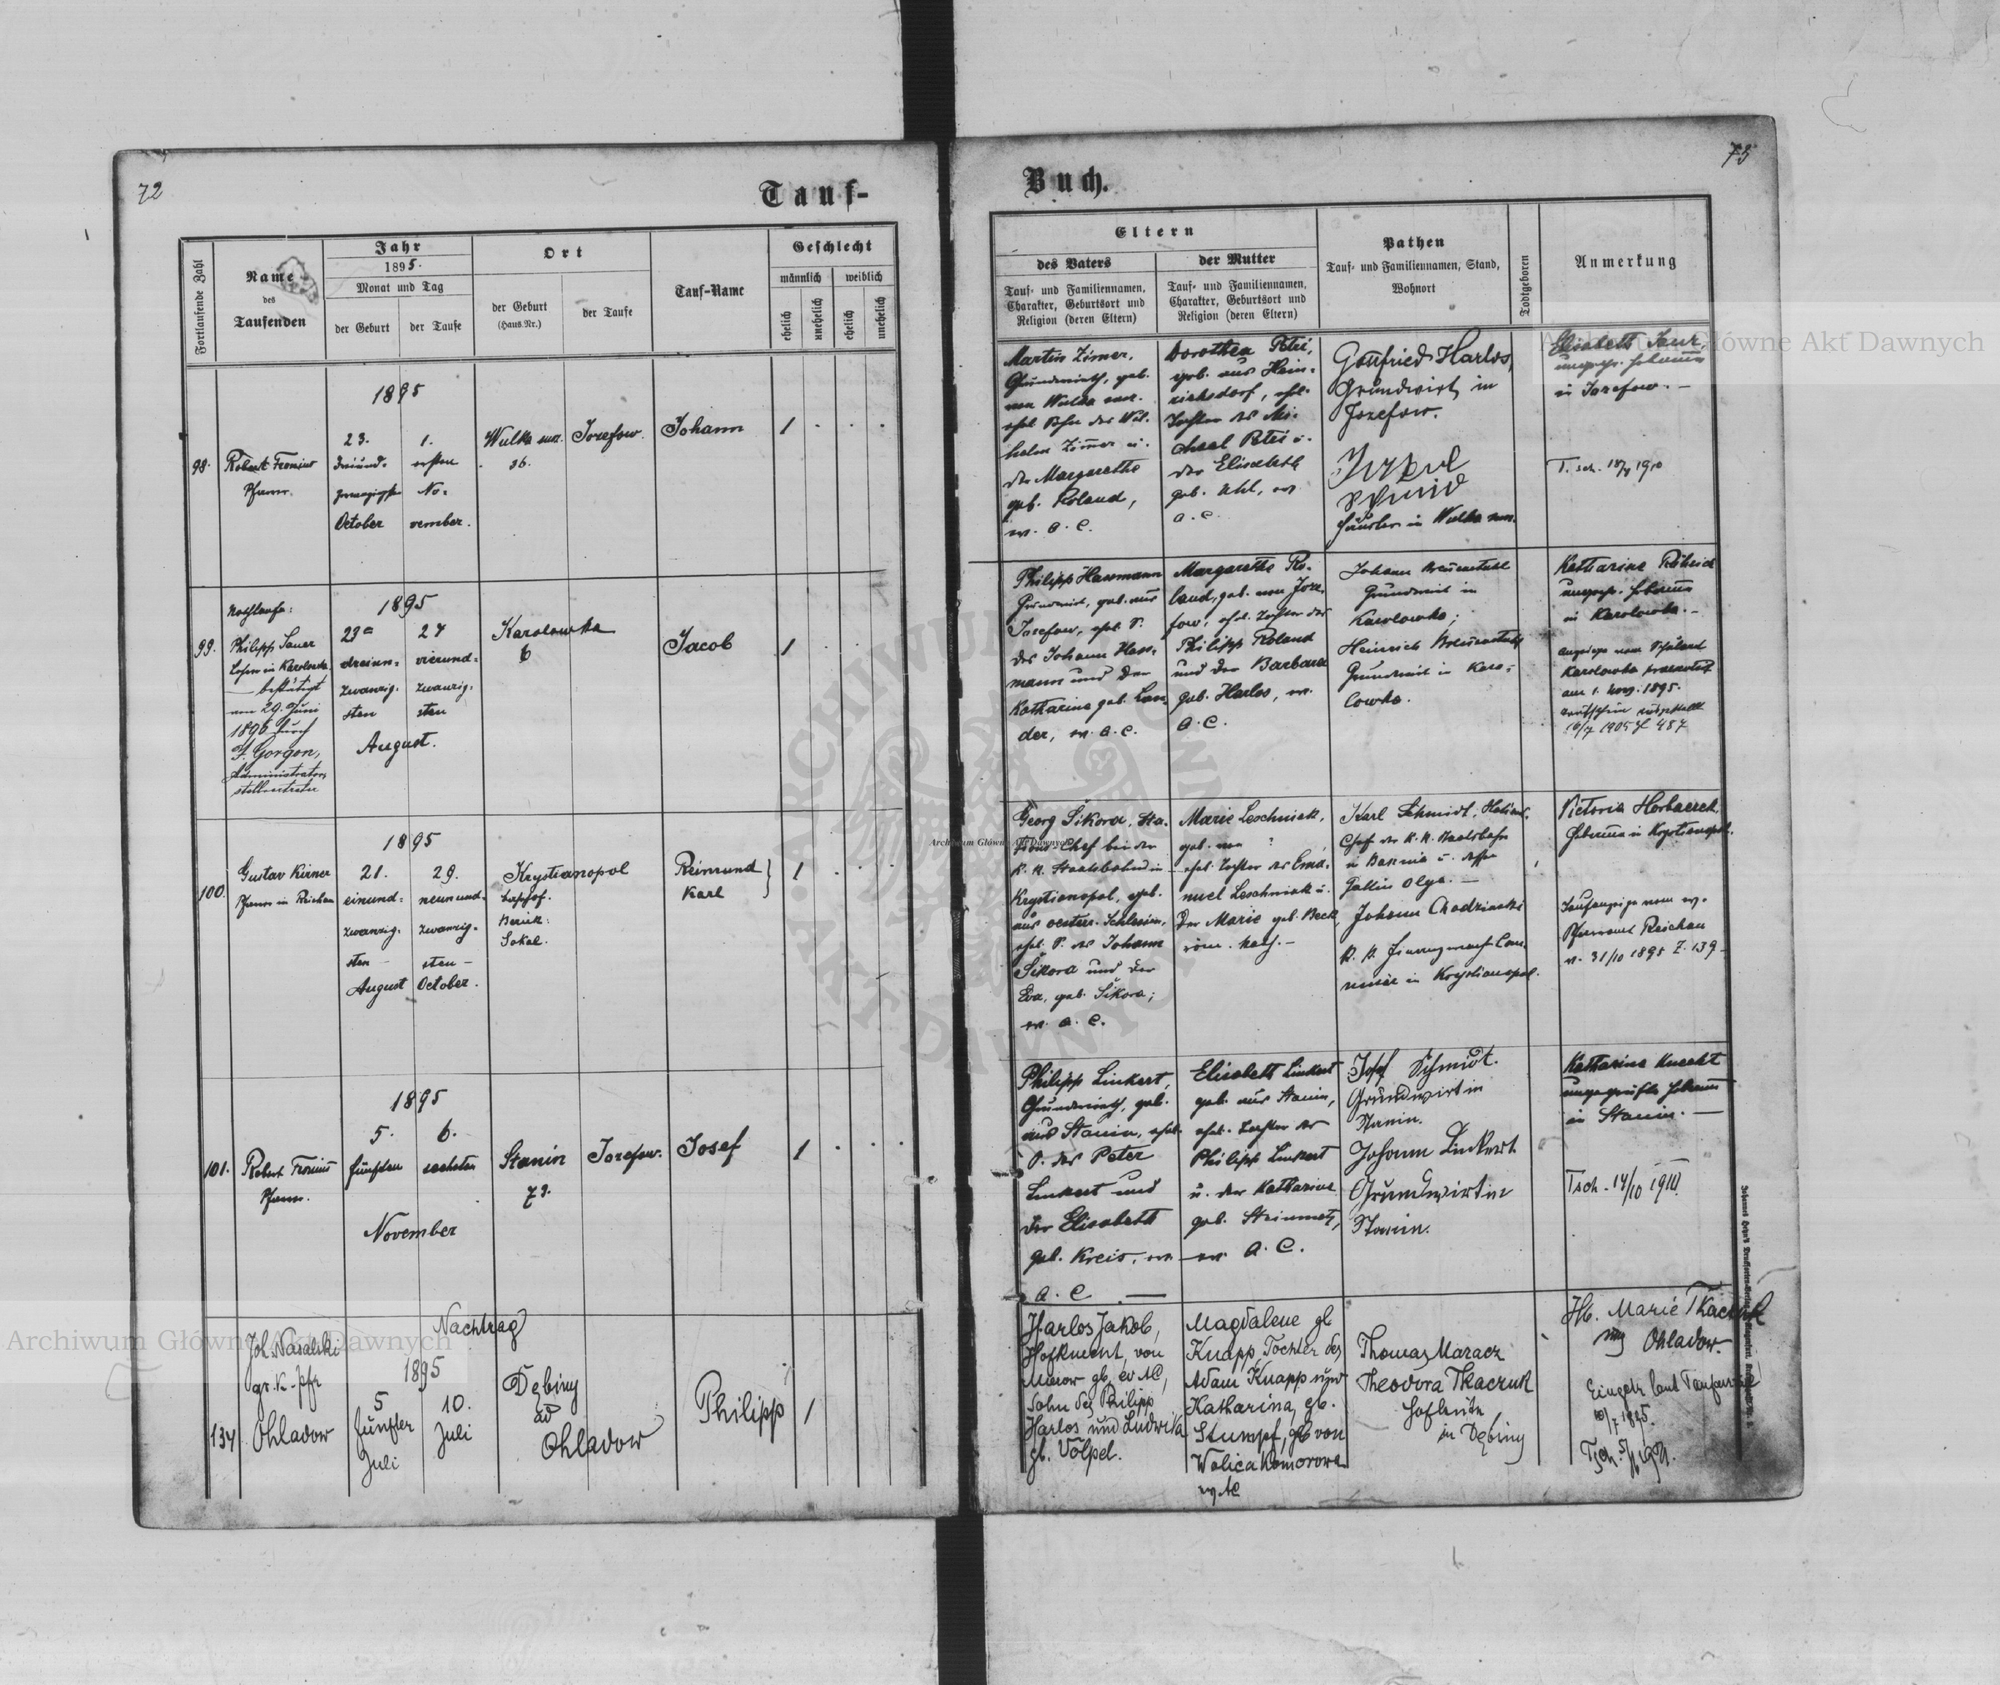 72
Tauf-
Fortlaufende Zahl
Name
des
Taufenden
Jahr
1895.
Monat und Tag
der Geburt
der Taufe
Ort
der Geburt
(Haus-Nr.)
der Taufe
Tauf-Name
Geschlecht
männlich
weiblich
ehelich
unehelich
ehelich
unehelich
98.
Robert Fronius
Pfarrer.
1895
23.
dreiund-
zwanzigsten
October
1.
ersten
No-
vember.
Wulka
36.
Jozefow.
Johann
1
99.
Nothtaufe:
Philipp Sauer
Lehrer in Karolowka
bestätigt
am 29. Juni
1896 durch
F. Gorgon,
Administrators
stellvertreter
1895
23
dreiun-
zwanzig-
sten
24
vierund-
zwanzig-
sten
August.
Karolowka
6
Jacob
1
100.
Gustav Kirner
Pfarrer in Reichau
1895
21.
einund-
zwanzig-
sten
August
29.
neunund-
zwanzig-
sten
October.
Krystianopol
Bahnhof.
Bezirk:
Sokal.
Reimund
Karl
1
101.
Robert Fronius
Pfarrer.
1895
5.
fünften
6.
sechsten
November
Stanin
73.
Jozefow.
Josef
1
134
Joh. Nawalski
gr. k. Pfr
Ohladow
Nachtrag
1895
5
fünfter
Juli
10.
Juli
Dębiny
ad
Ohladow
Philipp
1
Buch.
73
Eltern
des Vaters
Tauf- und Familiennamen,
Charakter, Geburtsort und
Religion (deren Eltern)
der Mutter
Tauf- und Familiennamen,
Charakter, Geburtsort und
Religion (deren Eltern)
Pathen
Tauf- und Familiennamen, Stand,
Wohnort
Todtgeboren
Anmerkung
Martin Zimer,
Grundwirth, geb.
von Wulka
ehel. Sohn des Wil-
helm Zimmer u.
der Margarethe
geb. Roland,
ev. A. C.
Dorothea Petri,
geb. aus Hein-
richsdorf, ehel.
Tochter des Mi-
chael Petri u.
der Elisabeth
geb. Uhl, ev.
A. C.
Gottfried Harlos,
Grundwirt, in
Jozefow.
Häusler in Wulka
Elisabeth Saur,
ungepr. Hebamme
in Jozefow. —
Philipp Hassmann
Grundwirt, geb. aus
Jozefow, ehel. S.
des Johann Hass-
mann und der
Katharina geb. Lan-
der, ev. A. C.
Margarethe Ro-
land, geb. von Joze-
fow, ehel. Tochter des
Philipp Roland
und der Barbara
geb. Harlos, ev.
A. C.
Johann
Grundwirt in
Karolowka;
Heinrich
Grundwirt in Karo-
lowka.
Katharina
ungepr. Hebamme
in Karolowka. —
am 1. Nov. 1895.
Georg Sikora, Sta-
tions-Chef bei der
K. K. Staatsbahn in
Krystianopol, geb.
aus oesterr. Schlesien,
ehel. S. des Johann
Sikora und der
Eva, geb. Sikora;
ev. A. C.
Marie Leschniak,
geb. von ?
ehel. Tochter des Ema-
nuel Leschniak u.
der Marie geb. Beck,
röm. kath. —
Karl Schmidt, Stations-
Chef der K. K. Staatsbahn
Gattin Olga. —
Johann
K. K. Finanzwach-Com-
missär in Krystianopol.
Victoria
Hebamme in Krystianopol.
Taufanzeige vom ev.
Pfarramt Reichau
v. 31/10 1895 Z. 139 —
Philipp Linkert,
Grundwirth, geb.
aus Stanin, ehel.
S. des Peter
Linkert und
der Elisabeth
geb. Kreis, ev.
A. C. —
Elisabeth Linkert
geb. aus Stanin,
ehel. Tochter des
Philipp Linkert
u. der Katharina
geb. Steinmetz,
ev. A. C.
Josef Schmidt.
Grundwirt in
Stanin.
Johann Linkert
Grundwirt in
Stanin.
Katharina Knecht
ungeprüfte Hebamme
in Stanin. —
Tsch. 14/10 1910.
Harlos Jakob,
Hofknecht, von
gb. ev AC,
Sohn des Philipp
Harlos und Ludwika
gb. Völpel.
Magdalene gb
Knapp, Tochter des
Adam Knapp und
Katharina, gb.
Stumpf, gb von
Wolica Komorowa
ev. AC
Thomas Maracz
Theodora Tkaczuk
Hofleute
in Dębiny
Hb. Marie Tkaczuk
aus Ohladow.
Archiwum Główne Akt Dawnych
Archiwum Główne Akt Dawnych
Archiwum Główne Akt Dawnych